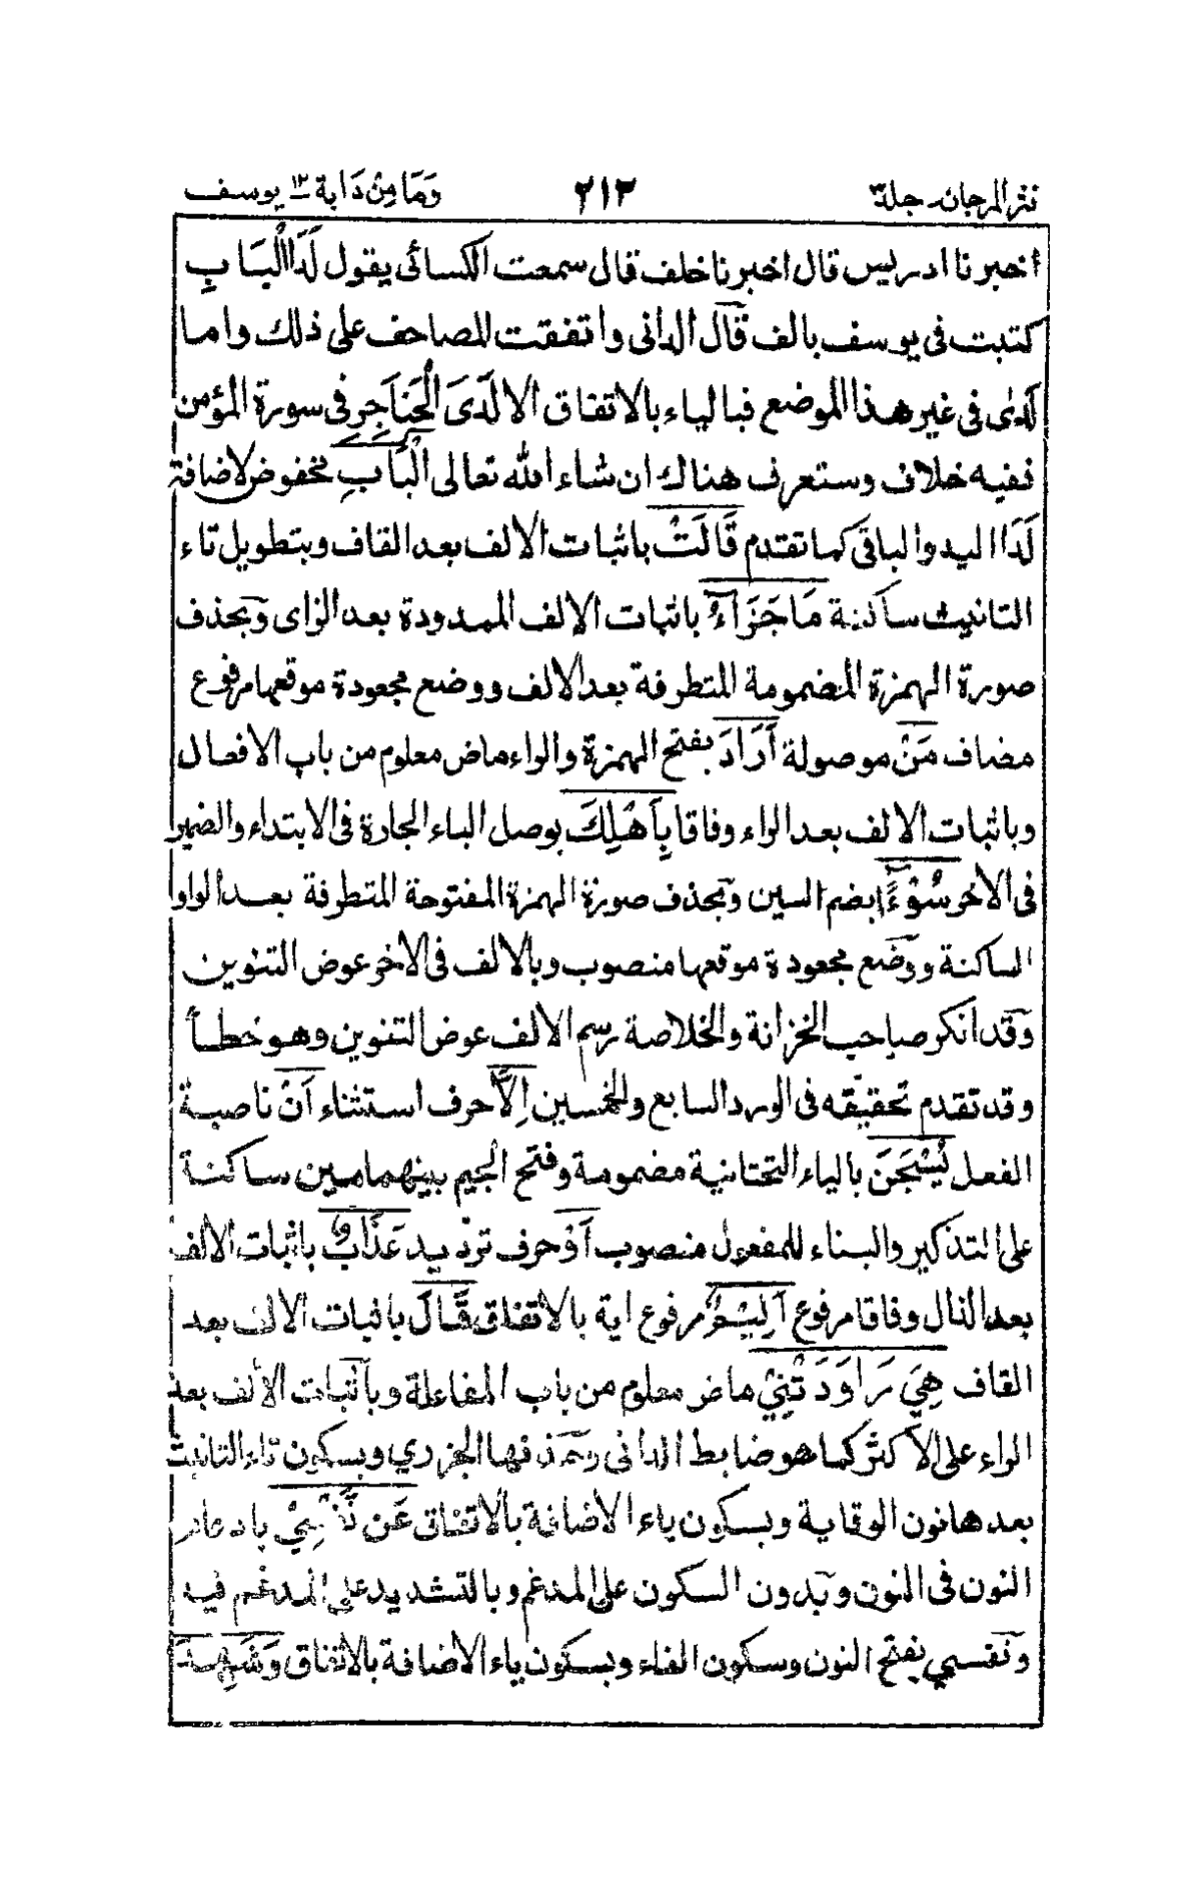 نثر المرجان۔ جلد٣ ٢١٢ وَمَا مِنْ دَابة ١٢ يوسف
اخبرنا ادريس قال اخبرنا خلف قال سمعت الكسائى يقول لَدَا الْبَابِ
كتبت فى يوسف بالف قال الدانى واتفقت المصاحف على ذلك واما
لدى فى غير هذا الموضع فبالياء بالاتفاق الا لَدَى الْحَنَاجِرِ فى سورة المؤمن
ففيه خلاف وستعرف هناك ان شاء الله تعالى الْبَابِ مخفوض لاضافة
لَدَا اليه والباقى كما تقدم قَالَتْ باثبات الالف بعد القاف وبتطويل تاء
التانيث ساكنة مَا جَزَآءُ باثبات الالف الممدودة بعد الزاى وبحذف
صورة الهمزة المضمومة المتطرفة بعد الالف ووضع مجعودة موقعها مرفوع
مضاف مَنْ موصولة اَرَادَ بفتح الهمزة والراء ماض معلوم من باب الافعال
وباثبات الالف بعد الراء وفاقا بِاَهْلِكَ بوصل الباء الجارة فى الابتداء والضمير
فى الاخر سُوْٓءًا بضم السين وبحذف صورة الهمزة المفتوحة المتطرفة بعد الواو
الساكنة ووضع مجعودة موقعها منصوب وبالالف فى الاخر عوض التنوين
وقد انكر صاحب الخزانة والخلاصة رسم الالف عوض التنوين وهو خطأ
وقد تقدم تحقيقه فى الورد السابع والخمسين اِلَّا حرف استثناء اَنْ ناصبة
الفعل يُّسْجَنَ بالياء التحتانية مضمومة وفتح الجيم بينهما سين ساكنة
على التذكير والبناء للمفعول منصوب اَوْ حرف ترديد عَذَابٌ باثبات الالف
بعد الذال وفاقا مرفوع اَلِيْمٌ مرفوع اية بالاتفاق قَالَ باثبات الالف بعد
القاف هِيَ رَاوَدَتْنِيْ ماض معلوم من باب المفاعلة وباثبات الالف بعد
الراء على الاكثر كما هو ضابط الدانى وحذفها الجزري وبسكون تاء التانيث
بعدها نون الوقاية وبسكون ياء الاضافة بالاتفاق عَن نَّفْسِيْ بادغام
النون فى النون وبدون السكون على المدغم وبالتشديد على المدغم فيه
ونفسي بفتح النون وسكون الفاء وبسكون ياء الاضافة بالاتفاق وَشَهِدَ